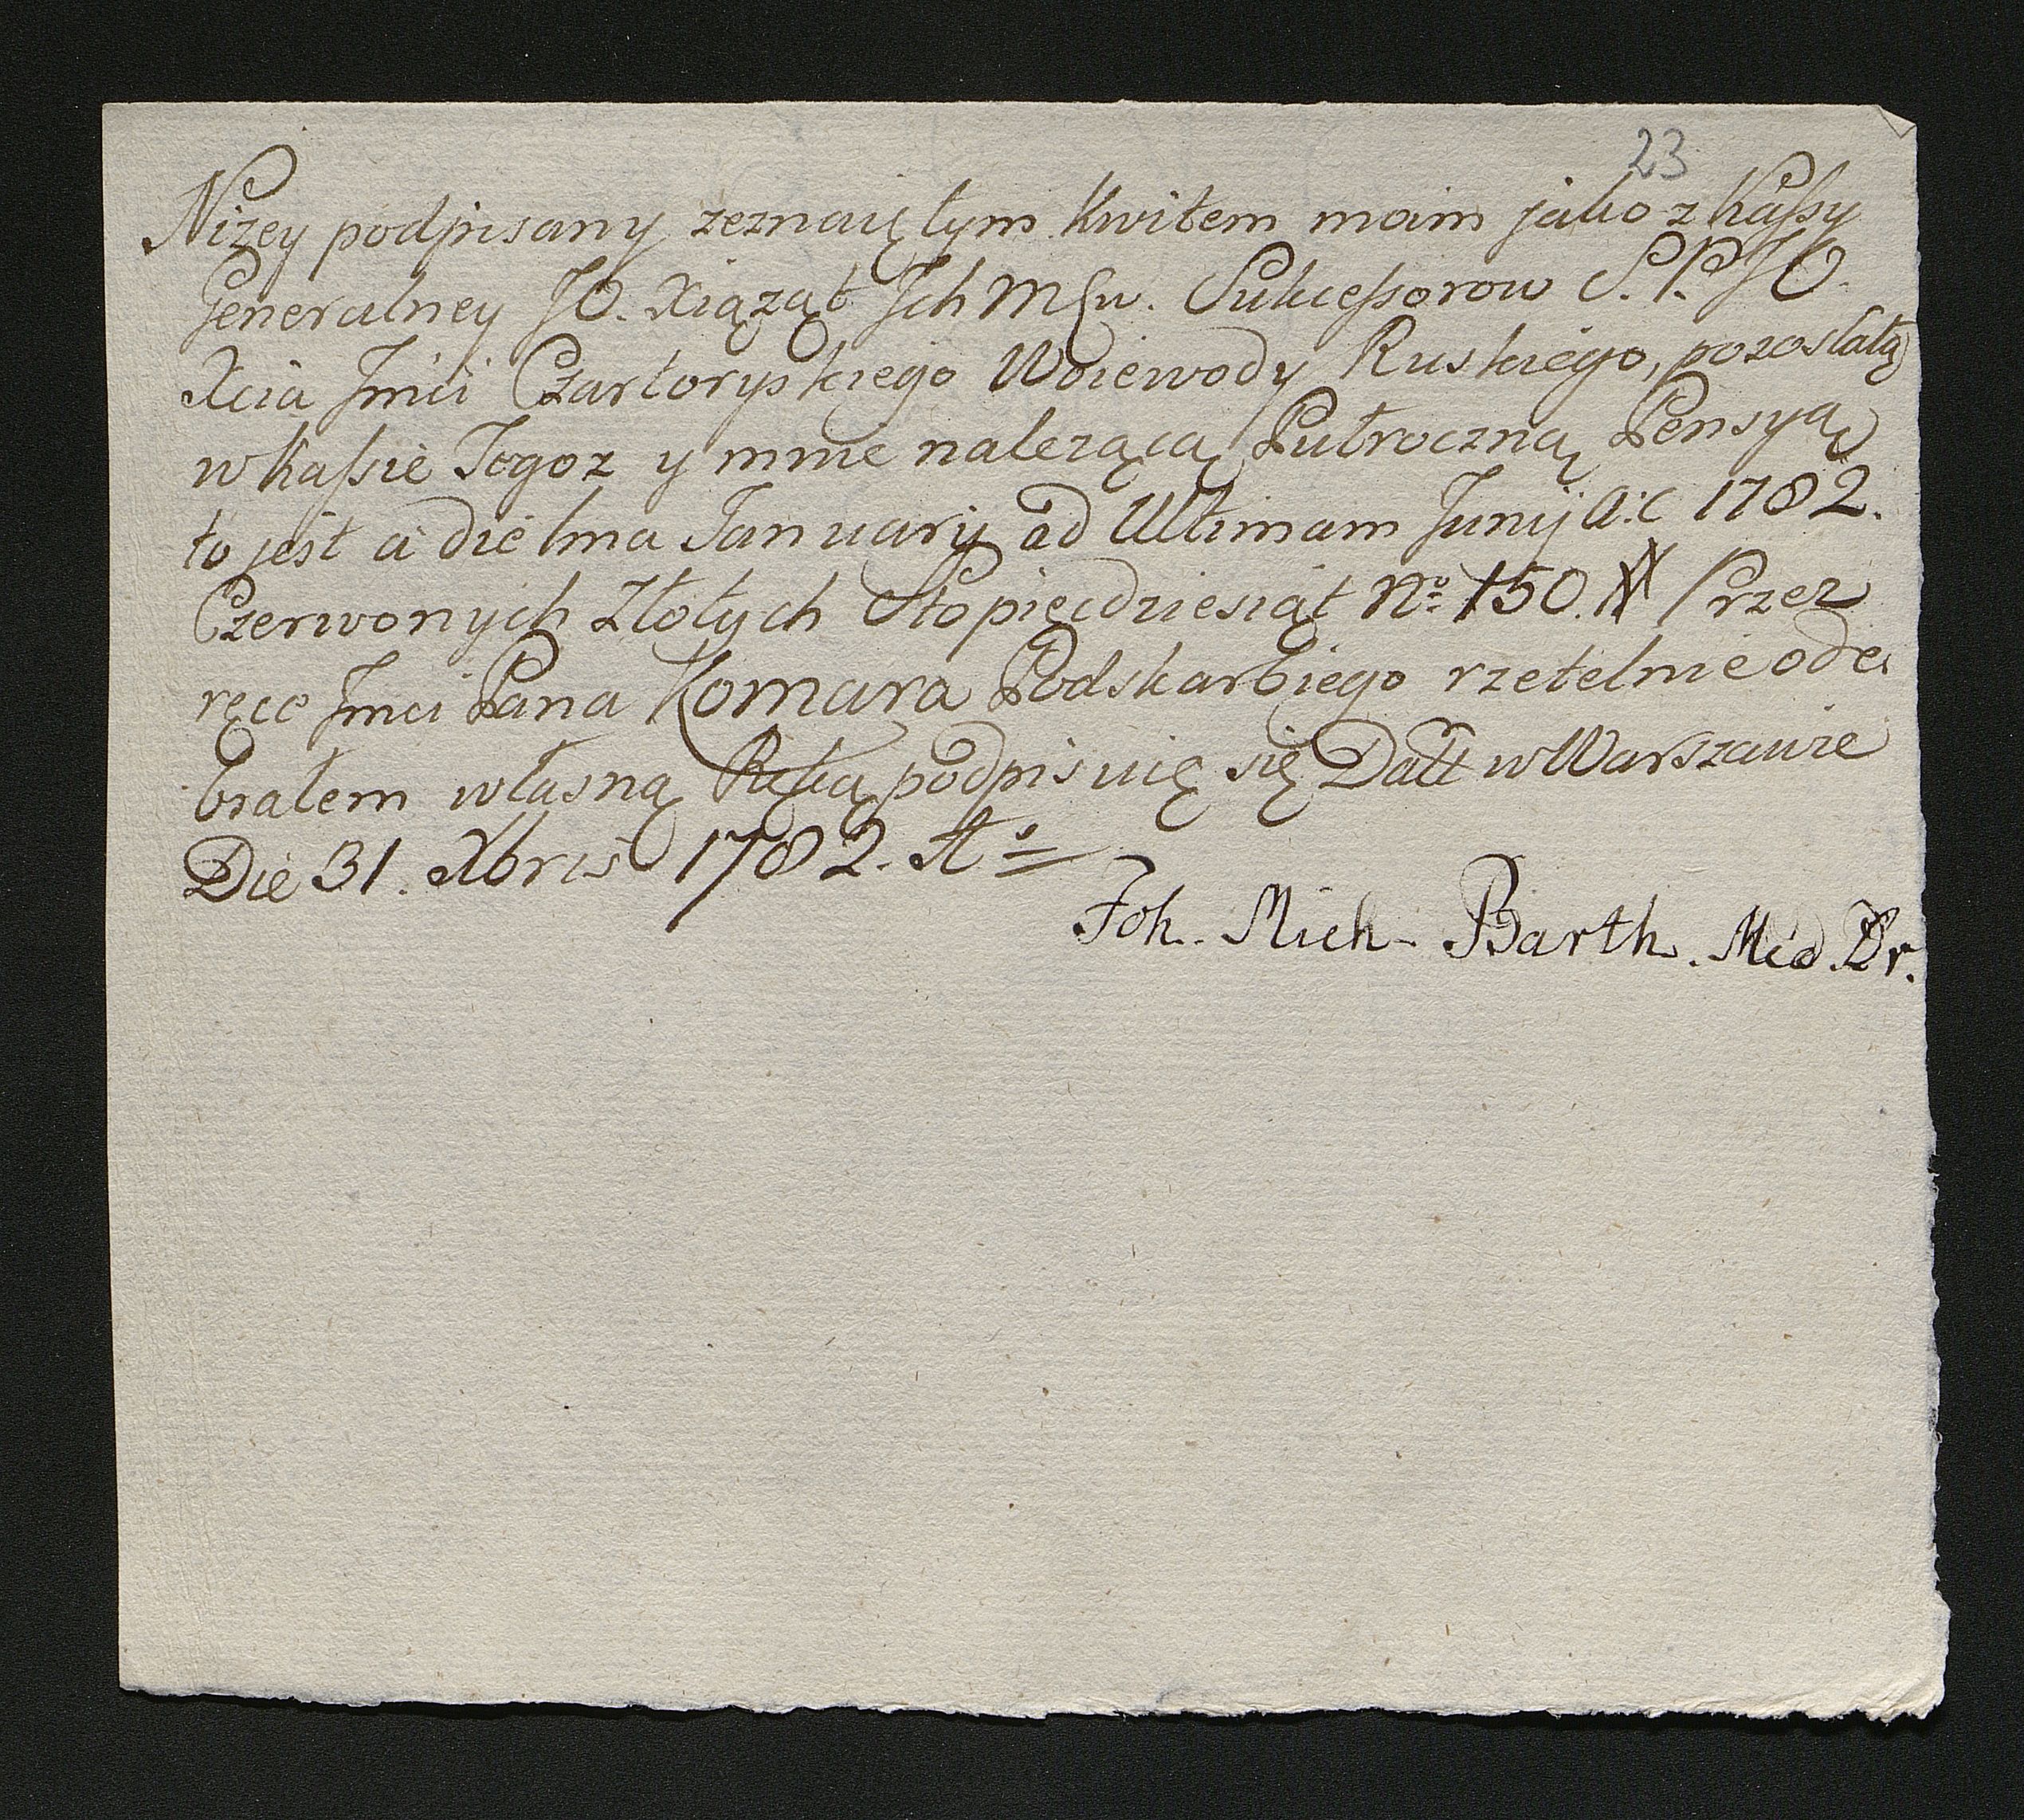 23
Niżey podpisany zeznaię tym Kwitem moim jako z Kaſsy
Generalney JO. Xiążąt Ich Mſw. Sukceſsorow S. P. JO.
Xcia Jmći Czartoryskiego Woiewody Ruskiego, pozostałą
w Kaſsie Tegoz y mnie nalezącą Pułroczną Pensyą
to jest a die 1ma January ad Ultimam Junij A: C 1782.
Czerwonych Złotych Stopięcdziesiąt No 150. # Przez
ręce Jmci Pana Komara Podskarbiego rzetelnie ode
brałem własną Ręką podpisuię się Datt w Warszawie
Die 31. Xbris 1782. Ao
Joh. Mich. Barth. Med. Dr.